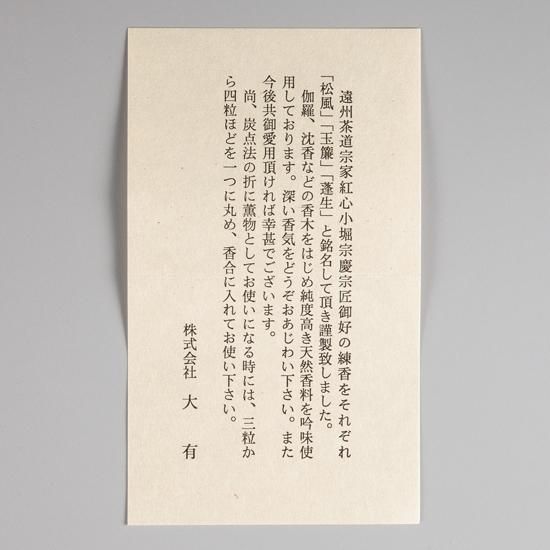 遠州茶道宗家紅心小堀宗慶宗匠御好の練香をそれぞれ
「松風」「玉簾」「蓬生」と銘名して頂き謹製致しました。
伽羅、沈香などの香木をはじめ純度高き天然香料を吟味使
用しております。深い香気をどうぞおあじわい下さい。また
今後共御愛用頂ければ幸甚でございます。
尚、炭点法の折に薫物としてお使いになる時には、三粒か
ら四粒ほどを一つに丸め、香合に入れてお使い下さい。
株式会社 大 有